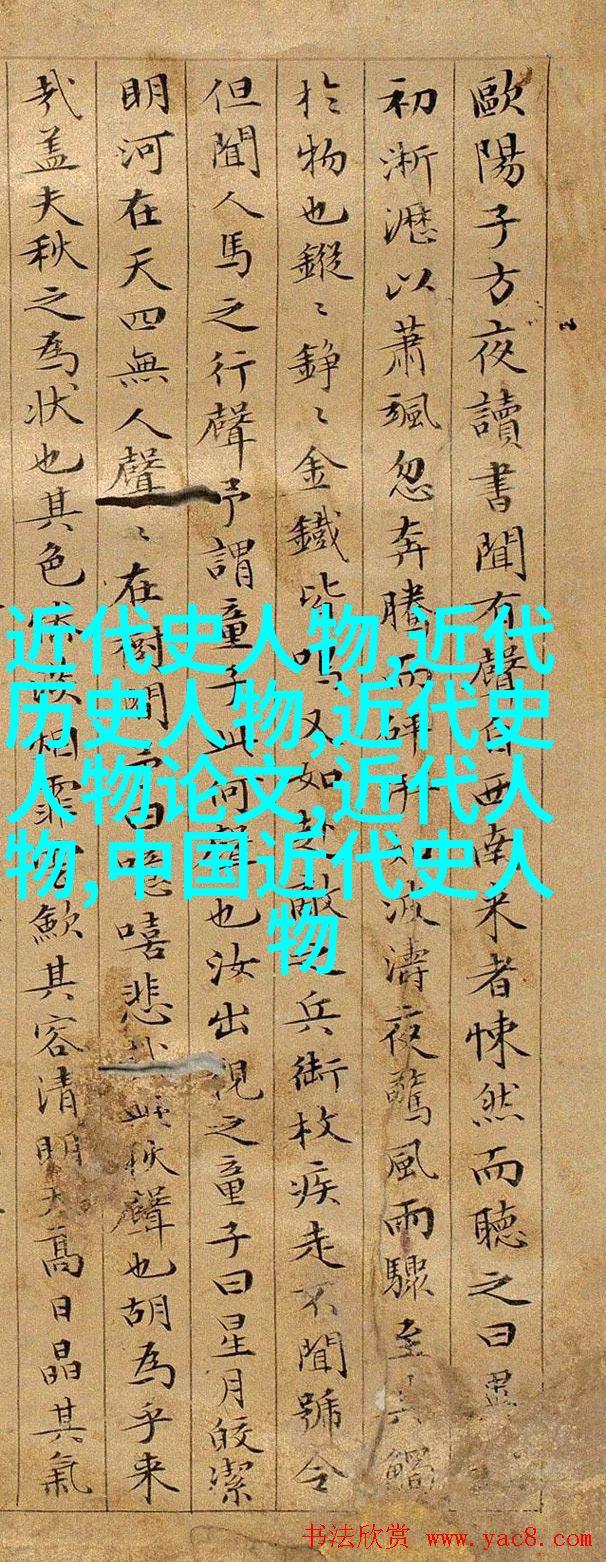 歐陽子方夜讀書聞有聲自西南来者悚然而聽之曰異
初淅瀝以蕭颯忽奔騰而砰如波濤夜驚風雨驟至其觸
扵物也鏦〻錚〻金鐵皆鳴又如赴敵之兵銜枚疾走不聞號令
但聞人馬之行聲予謂童子此何聲也汝出視之童子曰星月皎潔
明河在天四無人聲〻在樹間予曰噫嘻悲哉此秋聲也胡為乎来
哉盖夫秋之為狀也其色慘淡烟霏雲歛其容清明天高日晶其氣
近代史人物,近代
历史人物,近代史
人物论文,近代人
物,中国近代史人
物
书法欣赏 www.yac8.com